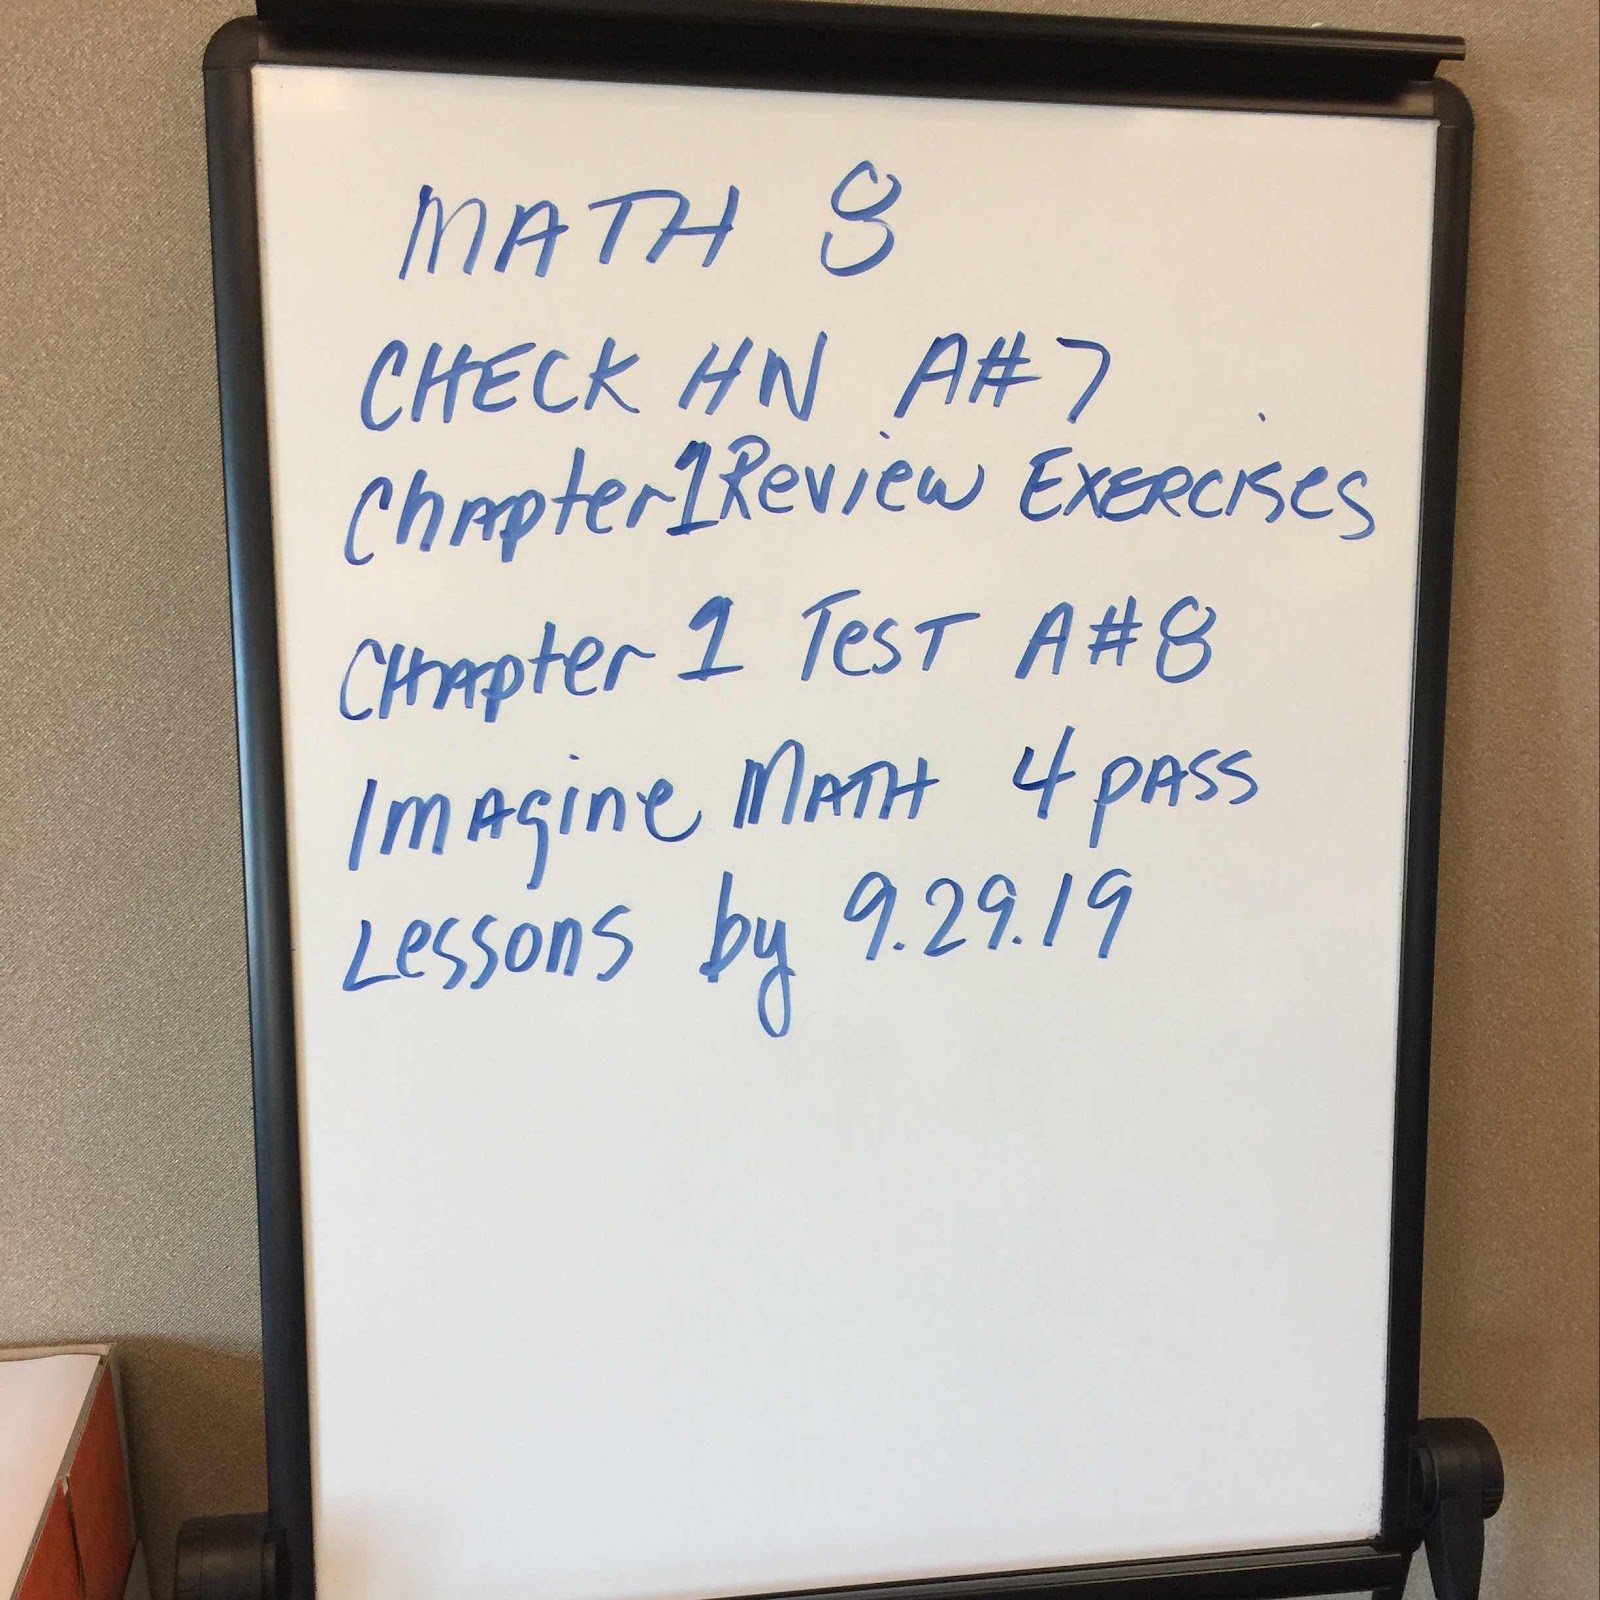 MATH 8
CHECK HN A#7
Chapter 1 Review EXERCISES
CHApter 1 TesT A#8
IMAgine MATH 4 pASS
Lessons by 9.29.19